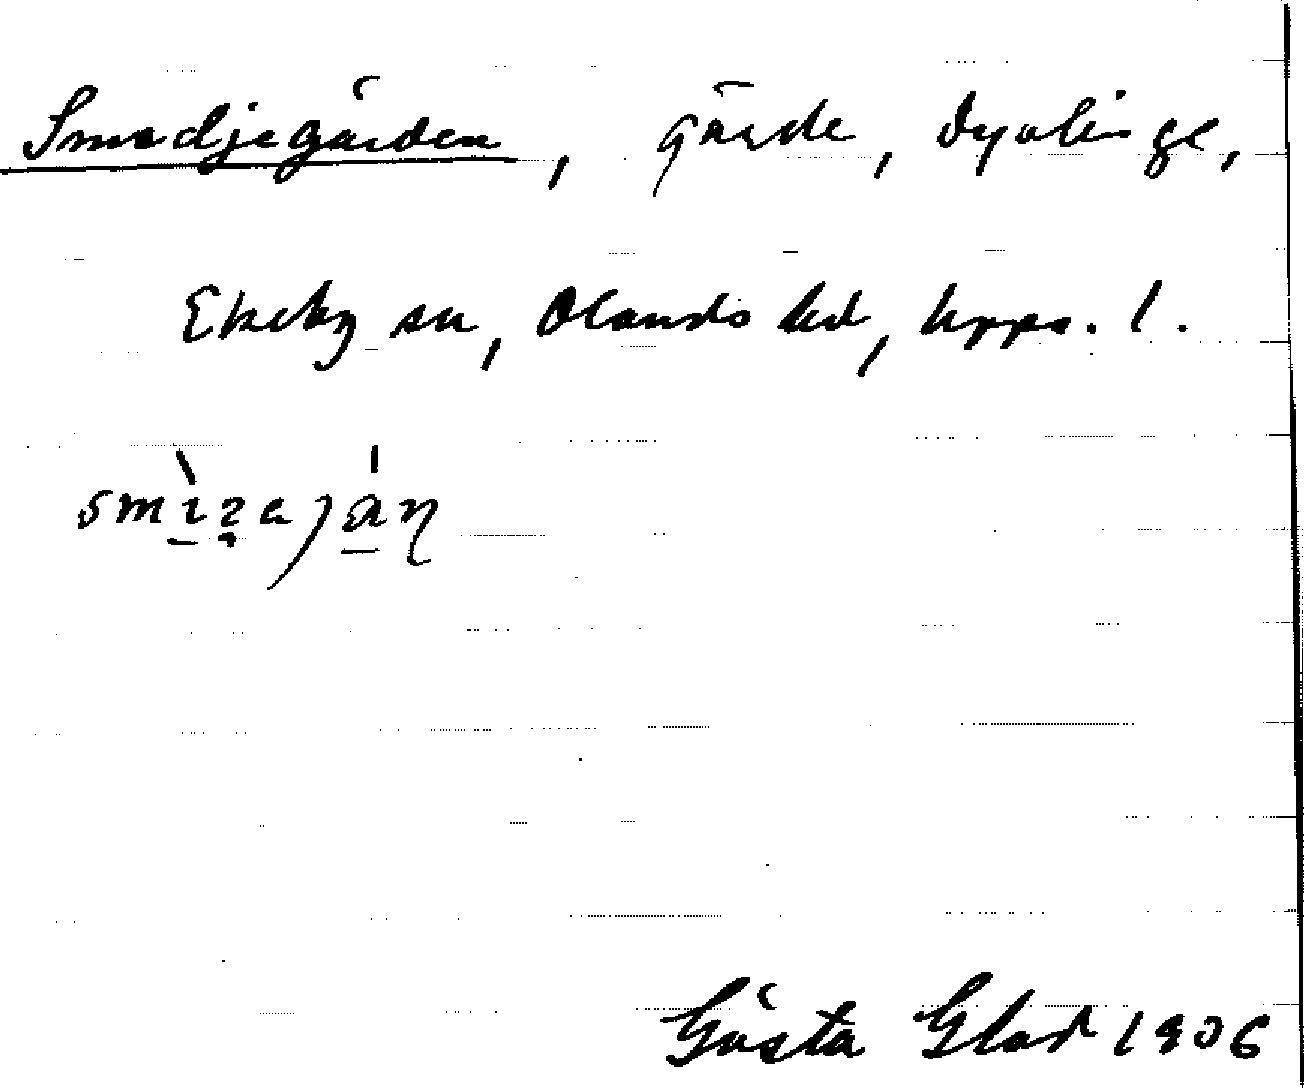 Smedjegärden, gärde, Dyvlinge,
Ekeby sn, Olands hd, Upps. l.
Gösta Glad 1906